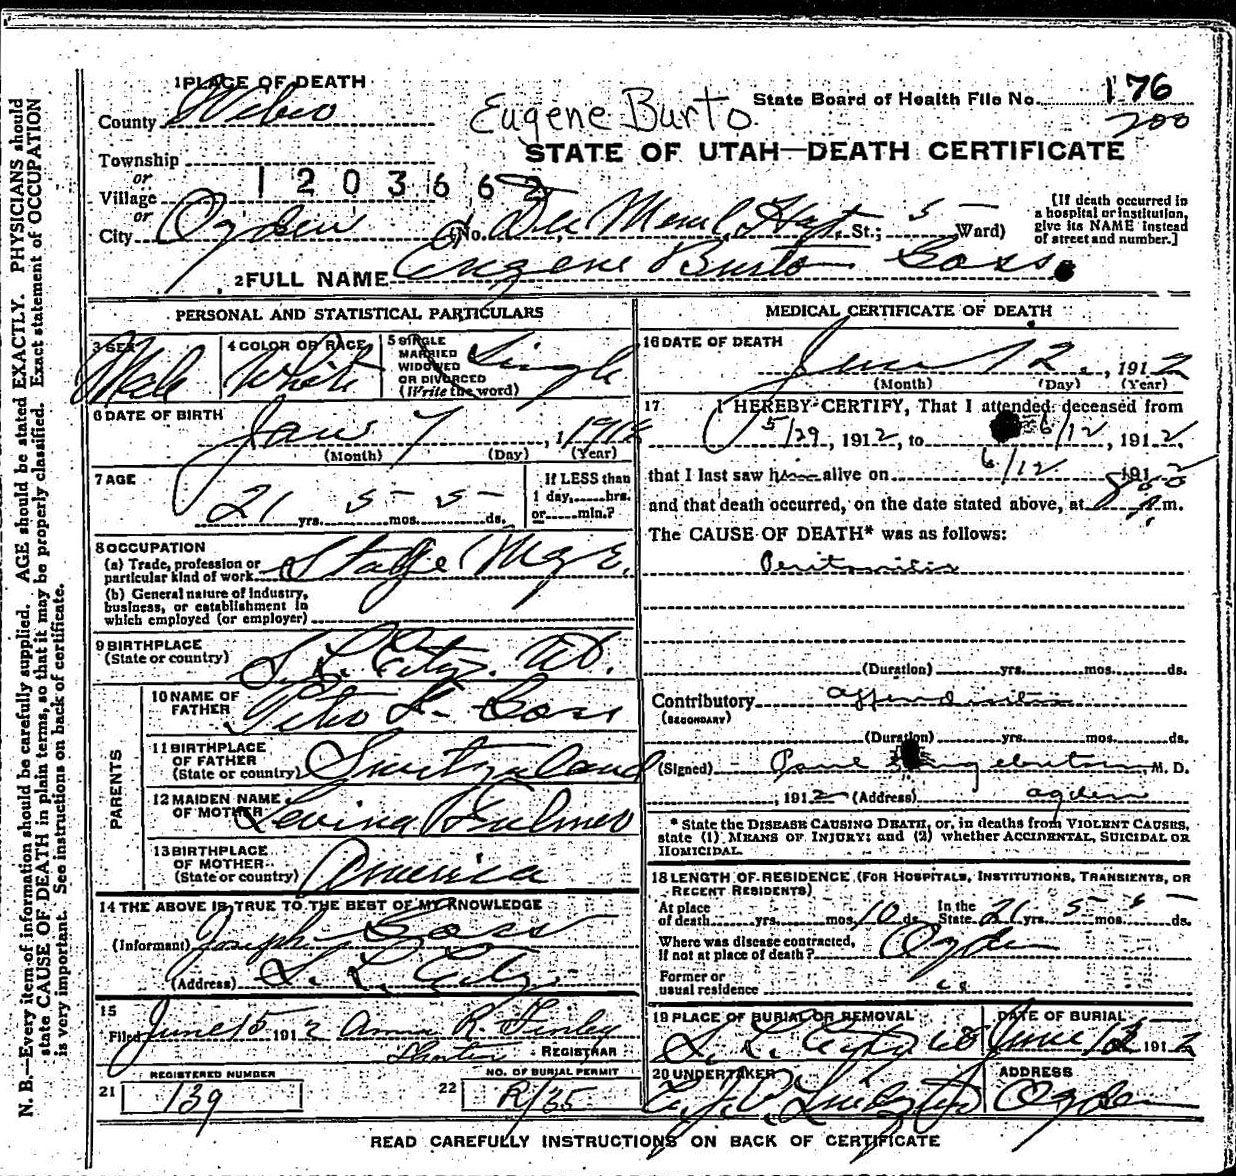 1 PLACE OF DEATH
County Weber
State Board of Health File No. 176
200
Eugene Burto
STATE OF UTAH—DEATH CERTIFICATE
Township
or
Village
1203662
or
City Ogden (No. Dee Meml Hspt, St.; 5 Ward)
[If death occurred in a hospital or institution, give its NAME instead of street and number.]
2 FULL NAME Eugene Burton Goss
PERSONAL AND STATISTICAL PARTICULARS
3 SEX Male
4 COLOR OR RACE White
5 SINGLE MARRIED WIDOWED OR DIVORCED (Write the word) Single
6 DATE OF BIRTH Jan 7, 1
(Month) (Day) (Year)
7 AGE 21 yrs. 5 mos. 5 ds.
If LESS than 1 day,......hrs. or......min.?
8 OCCUPATION
(a) Trade, profession or particular kind of work Stage Mgr.
(b) General nature of industry, business, or establishment in which employed (or employer)
9 BIRTHPLACE (State or country) S. L. City. Ut.
PARENTS
10 NAME OF FATHER Goss
11 BIRTHPLACE OF FATHER (State or country) Switzerland
12 MAIDEN NAME OF MOTHER Levina Fulmer
13 BIRTHPLACE OF MOTHER (State or country) America
14 THE ABOVE IS TRUE TO THE BEST OF MY KNOWLEDGE
(Informant) Joseph Goss
(Address) S. L. City
15
Filed June 15 1912 Anna R. Finley
REGISTRAR
REGISTERED NUMBER
21 139
NO. OF BURIAL PERMIT
22 R/35
MEDICAL CERTIFICATE OF DEATH
16 DATE OF DEATH June 12, 1912
(Month) (Day) (Year)
17 I HEREBY CERTIFY, That I attended deceased from
5/29, 1912, to 6/12, 1912,
that I last saw him alive on 6/12 1912
and that death occurred, on the date stated above, at 8 m.
The CAUSE OF DEATH* was as follows:
Peritonitis
(Duration) yrs. mos. ds.
Contributory appendicitis
(SECONDARY)
(Duration) yrs. mos. ds.
(Signed) Paul M. D.
, 1912 (Address) Ogden
* State the DISEASE CAUSING DEATH, or, in deaths from VIOLENT CAUSES, state (1) MEANS OF INJURY; and (2) whether ACCIDENTAL, SUICIDAL OR HOMICIDAL.
18 LENGTH OF RESIDENCE (FOR HOSPITALS, INSTITUTIONS, TRANSIENTS, OR RECENT RESIDENTS)
At place of death yrs. mos. 10 ds. In the State 21 yrs. 5 mos. 5 ds.
Where was disease contracted, if not at place of death? Ogden
Former or usual residence
19 PLACE OF BURIAL OR REMOVAL S. L. City
DATE OF BURIAL June 1912
20 UNDERTAKER
ADDRESS Ogden
READ CAREFULLY INSTRUCTIONS ON BACK OF CERTIFICATE
N. B.—Every item of information should be carefully supplied. AGE should be stated EXACTLY. PHYSICIANS should
state CAUSE OF DEATH in plain terms, so that it may be properly classified. Exact statement of OCCUPATION
is very important. See instructions on back of certificate.